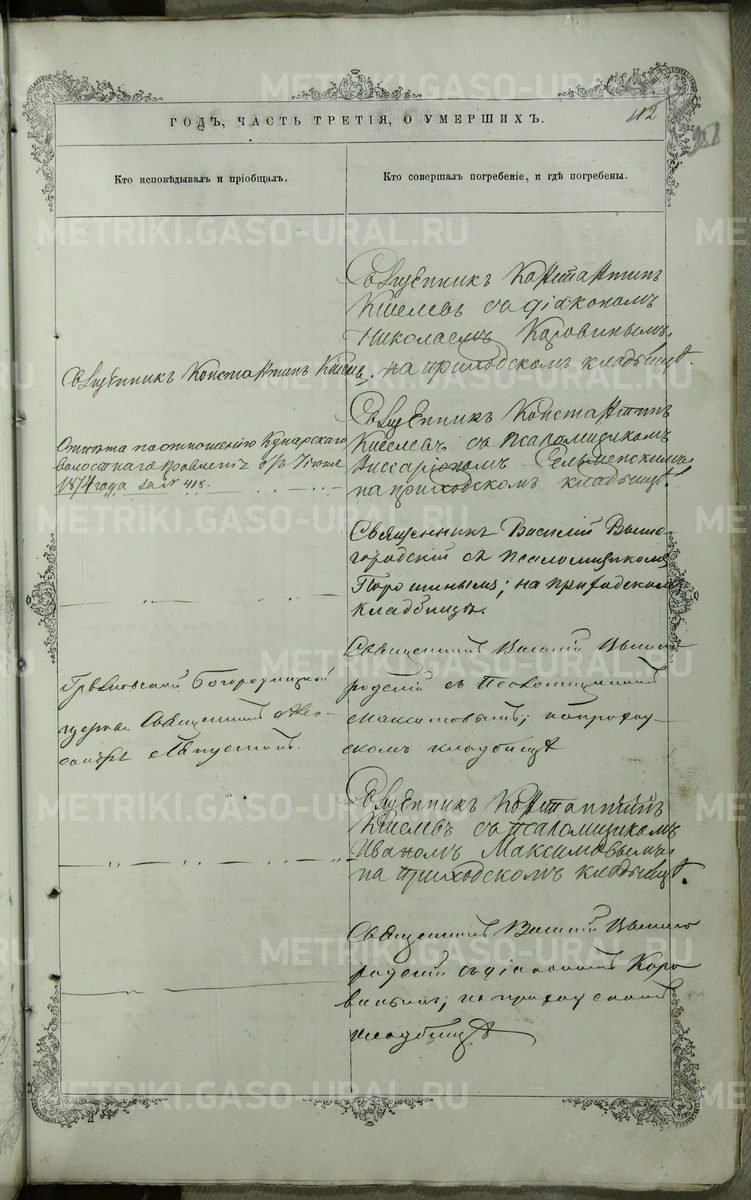 METRIKI.GASO-URAL.RU
412
ГОДЪ, ЧАСТЬ ТРЕТІЯ, О УМЕРШИХЪ.
Кто исповѣдывалъ и пріобщалъ.
Кто совершалъ погребеніе, и гдѣ погребены.
Священникъ Константинъ
Киселевъ съ діакономъ
Николаемъ Коровинымъ,
Священникъ Константинъ Киселевъ.
на приходскомъ кладбищѣ.
Священникъ Константинъ
Киселевъ съ псаломщикомъ
Виссаріономъ Сельменскимъ
на приходскомъ кладбищѣ.
по отношенію Кунарскаго
волостнаго правленія отъ 7 іюня
1874 года за № 418.
Священникъ Василій Выше-
городскій съ псаломщикомъ
Порошинымъ; на приходскомъ
кладбищѣ.
Священникъ Василій Вышего
родскій съ Псаломщикомъ
Максимовымъ; на приход-
скомъ кладбищѣ
Грязновской Богородицкой
церкви Священникъ
Священникъ Константинъ
Киселевъ съ псаломщикомъ
Иваномъ Максимовымъ
на приходскомъ кладбищѣ.
Священникъ Василій Вышего
родскій съ діакономъ Коро
винымъ; на приходскомъ
кладбищѣ